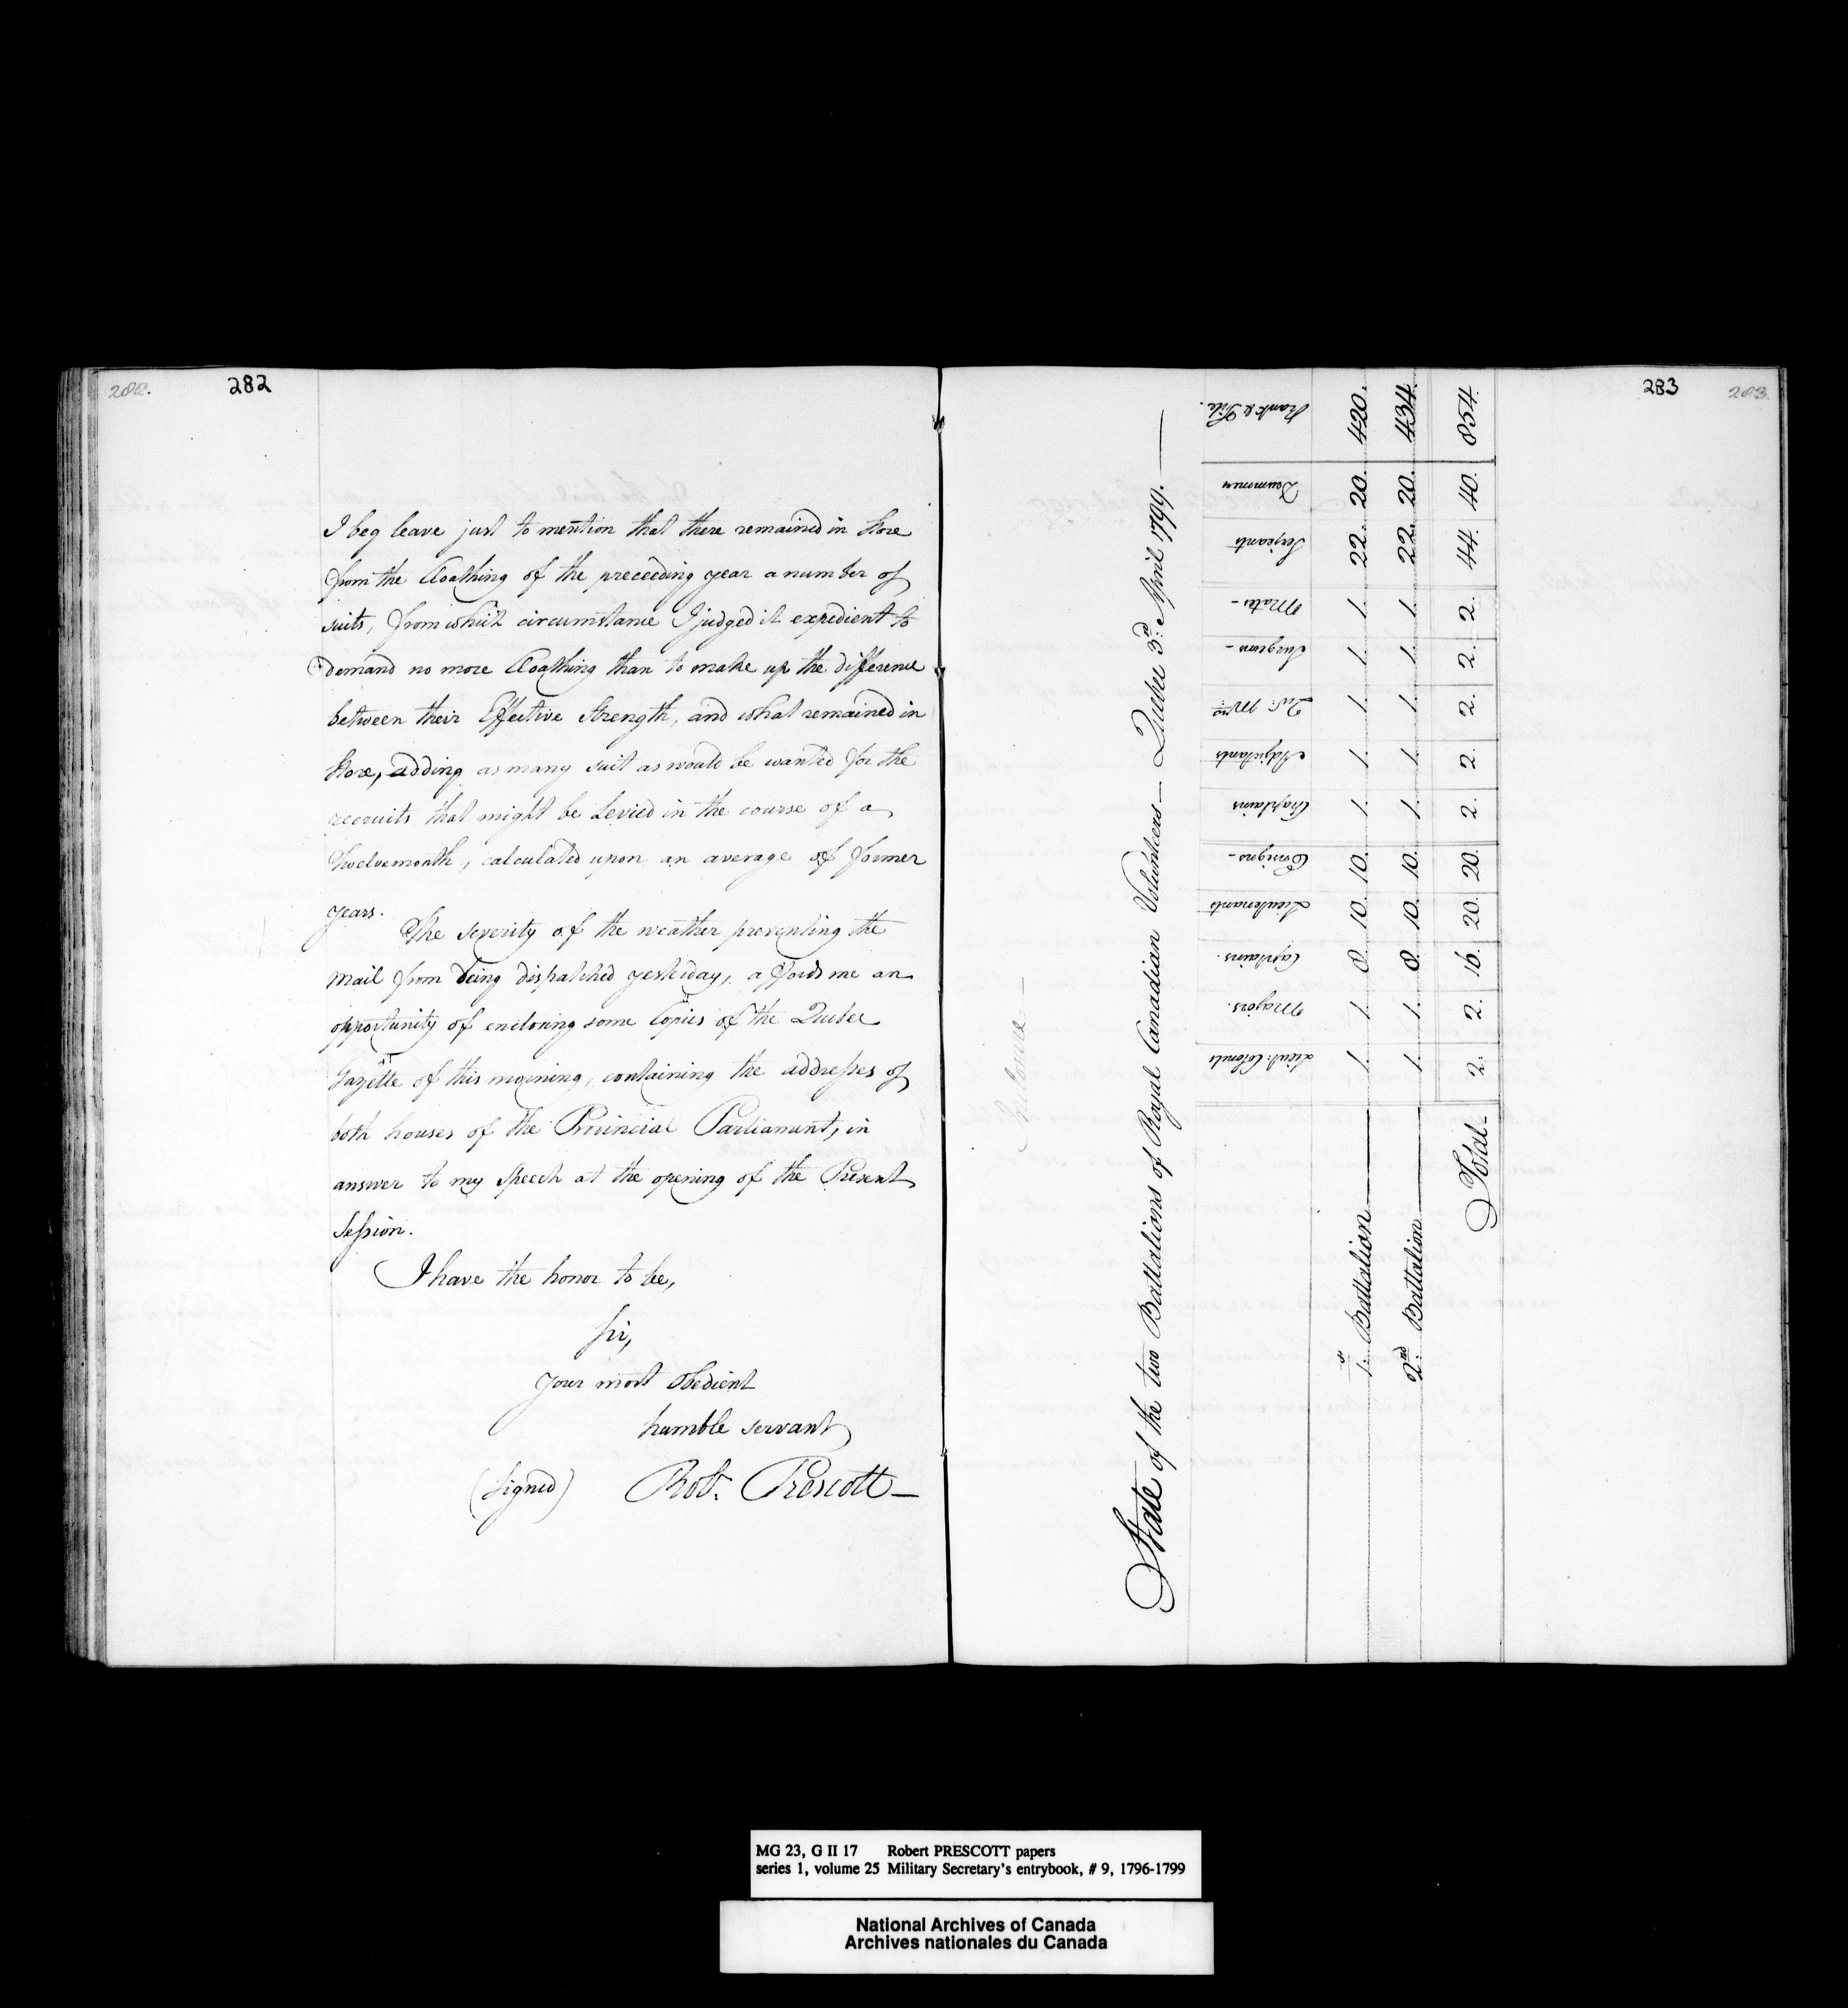 282.
282
I beg leave just to mention that there remained in Store
from the Cloathing of the preceeding year a number of
suits, from which circumstance I judged it expedient to
demand no more Cloathing than to make up the difference
between their Effective Strength, and what remained in
Store, adding as many suit as would be wanted for the
recruits that might be Levied in the course of a
Twelvemonth, calculated upon an average of former
years.
The severity of the weather preventing the
mail from being dispatched yesterday, affords me an
opportunity of enclosing some Copies of the Quebec
Gazette of this morning, containing the addresses of
both houses of the Provincial Parliament, in
answer to my Speech at the opening of the Present
Session.
I have the honor to be,
Sir,
your most obedient
humble servant
(Signed) Robt. Prescott
283
283.
Inclosure
State of the two Battalions of Royal Canadian Volunteers — Quebec 3rd. April 1799.
Lieut: Colonels Majors. Captains. Lieutenants Ensigns Chaplains Adjutants Qur. Mrs. Surgeons Mates Serjeants Drummers Rank & File.
1st. Battalion 1. 1. 8. 10. 10. 1. 1. 1. 1. 1. 22. 20. 420.
2nd. Battalion 1. 1. 8. 10. 10. 1. 1. 1. 1. 1. 22. 20. 434.
Total 2. 2. 16. 20. 20. 2. 2. 2. 2. 2. 44. 40. 854.
MG 23, G II 17 Robert PRESCOTT papers
series 1, volume 25 Military Secretary's entrybook, # 9, 1796-1799
National Archives of Canada
Archives nationales du Canada